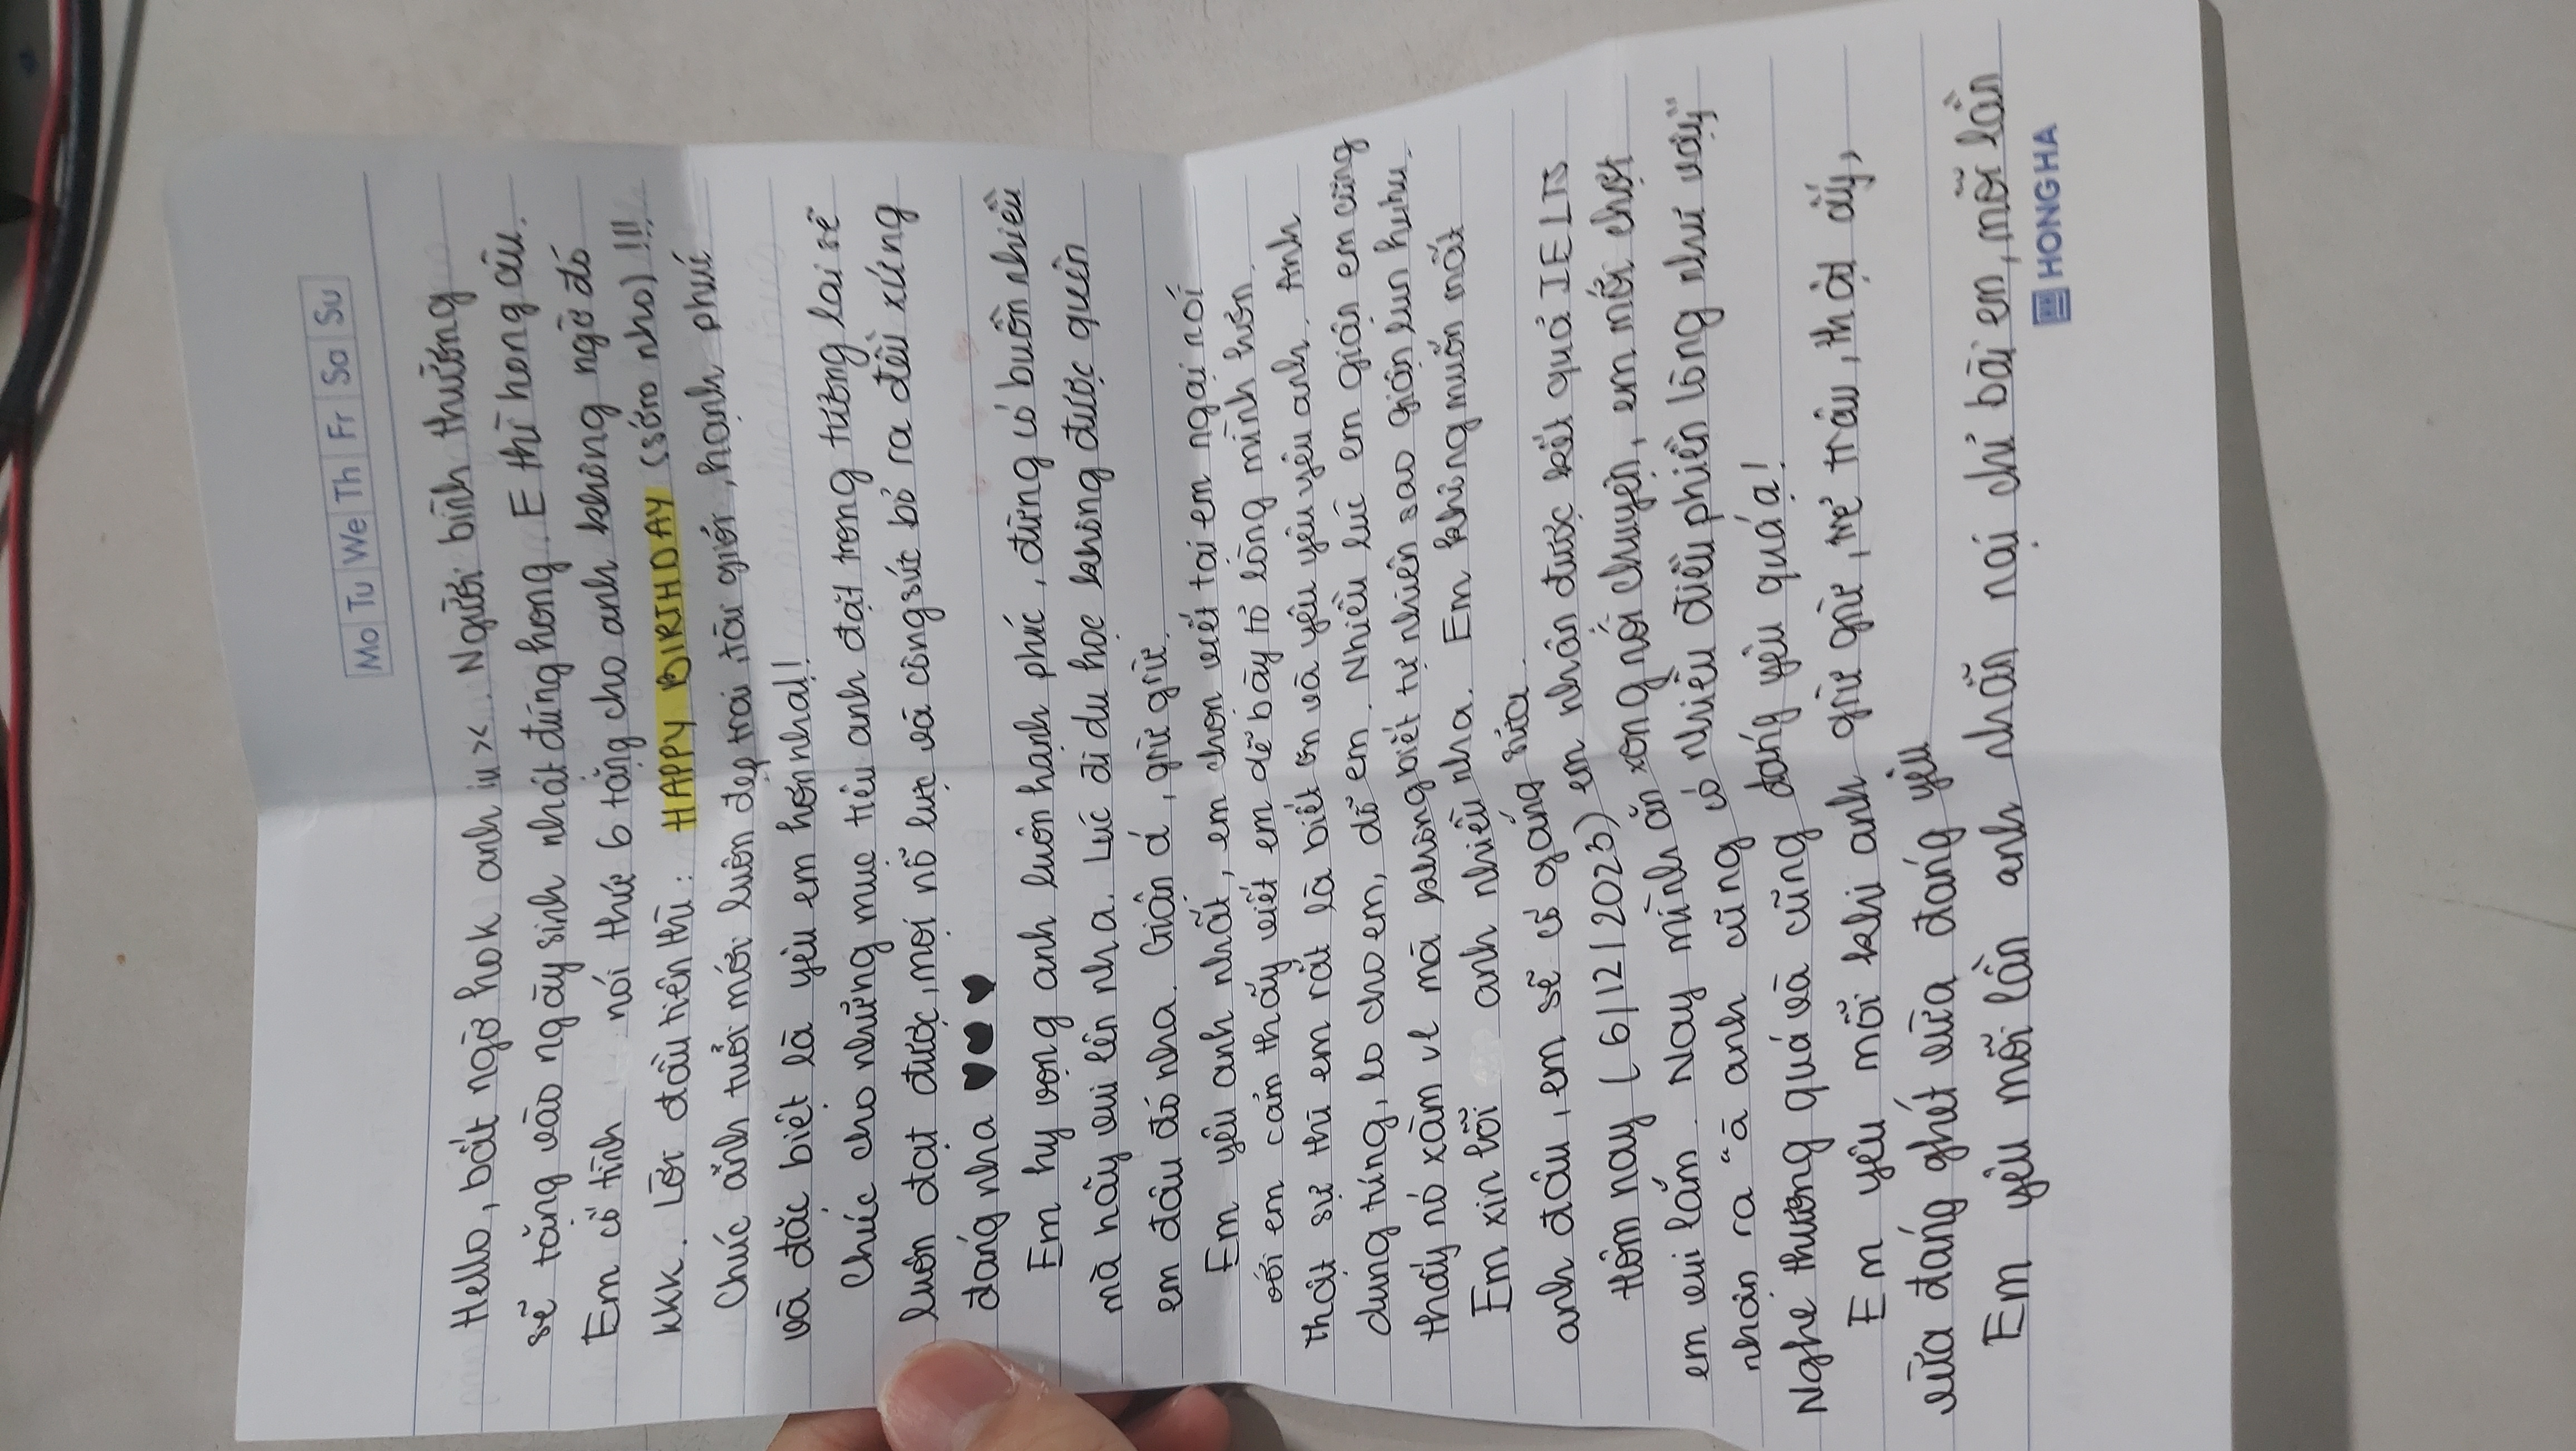 Mo Tu We Th Fr Sa Su
Hello, bất ngờ hok anh iu ><. Người bình thường
sẽ tặng vào ngày sinh nhật đúng hong. E thì hong âu.
Em cố tình nói thứ 6 tặng cho anh không ngờ đó
kkk. Lời đầu tiên thì: HAPPY BIRTHDAY (sớm nho) !!!
Chúc ảnh tuổi mới luôn đẹp trai, tài giỏi, hạnh phúc
và đặc biệt là yêu em hơn nha!!
Chúc cho những mục tiêu anh đặt trong tương lai sẽ
luôn đạt được, mọi nỗ lực và công sức bỏ ra đều xứng
đáng nha ♥♥♥
Em hy vọng anh luôn hạnh phúc, đừng có buồn nhiều
mà hãy vui lên nha. Lúc đi du học không được quên
em đâu đó nha. Giận á, grừ grừ.
Em yêu anh nhất, em chọn viết tại em ngại nói
với em cảm thấy viết em dễ bày tỏ lòng mình hơn.
Thật sự thì em rất là biết ơn và yêu yêu yêu anh. Anh
dung túng, lo cho em, dỗ em. Nhiều lúc em giận em cũng
thấy nó xàm vl mà không biết tự nhiên sao giận lun huhu.
Em xin lỗi anh nhiều nha. Em không muốn mất
anh đâu, em sẽ cố gắng sửa.
Hôm nay (6/12/2023) em nhận được kết quả IELTS
em vui lắm. Nay mình ăn xong nói chuyện, em mới chợt
nhận ra "à anh cũng có nhiều điều phiền lòng như vậy"
Nghe thương quá và cũng đáng yêu quá ạ!
Em yêu mỗi khi anh grừ grừ, trẻ trâu, thật ấy,
vừa đáng ghét vừa đáng yêu
Em yêu mỗi lần anh nhẫn nại chỉ bài em, mỗi lần
HONG HA